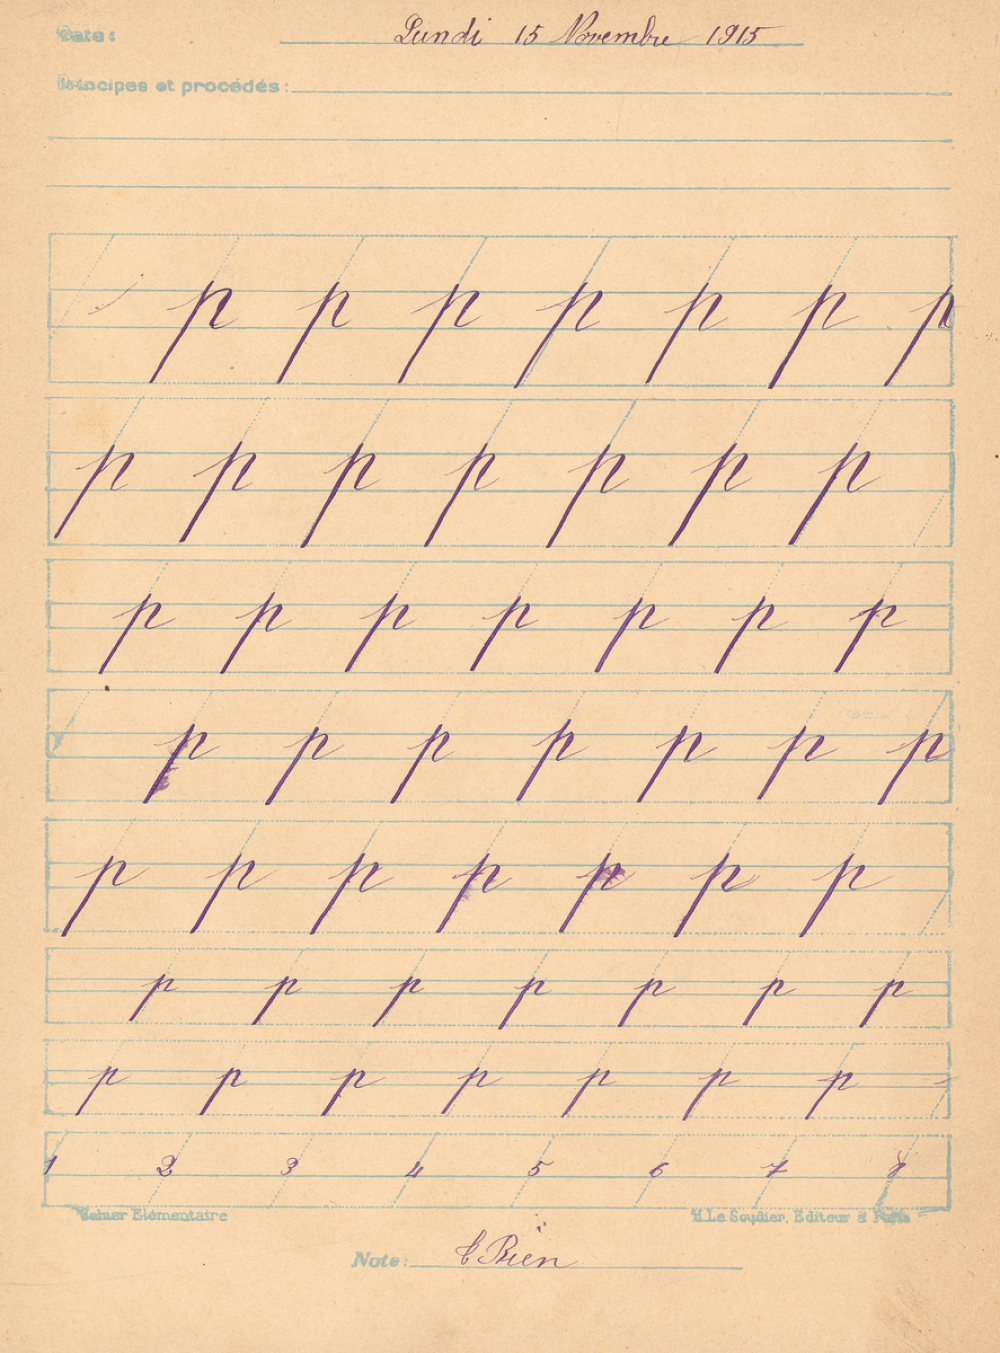 Date: Lundi 15 Novembre 1915
Principes et procédés:
p p p p p p p
p p p p p p p
p p p p p p p
p p p p p p p
p p p p p p p
p p p p p p p
p p p p p p p
1 2 3 4 5 6 7 8
Cahier Élémentaire H. Le Soudier, Editeur à Paris
Note: t Bien